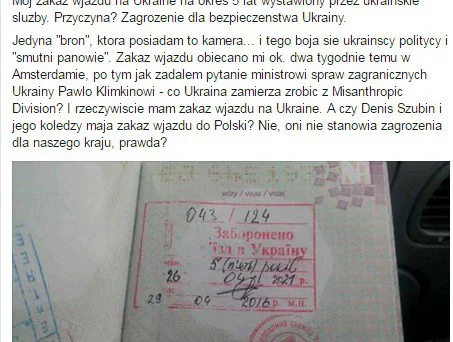 Mój zakaz wjazdu na Ukraine na okres 5 lat wystawiony przez ukrainskie
sluzby. Przyczyna? Zagrozenie dla bezpieczenstwa Ukrainy.
Jedyna "bron", ktora posiadam to kamera... i tego boja sie ukrainscy politycy i
"smutni panowie". Zakaz wjazdu obiecano mi ok. dwa tygodnie temu w
Amsterdamie, po tym jak zadalem pytanie ministrowi spraw zagranicznych
Ukrainy Pawlo Klimkinowi - co Ukraina zamierza zrobic z Misanthropic
Division? I rzeczywiscie mam zakaz wjazdu na Ukraine. A czy Denis Szubin i
jego koledzy maja zakaz wjazdu do Polski? Nie, oni nie stanowia zagrozenia
dla naszego kraju, prawda?
wizy / visas / visas
043 / 124
Заборонено
в'їзд в Україну
5 (п'ять) років
26 04 2021 р.
29 04 2016 р. м.п.